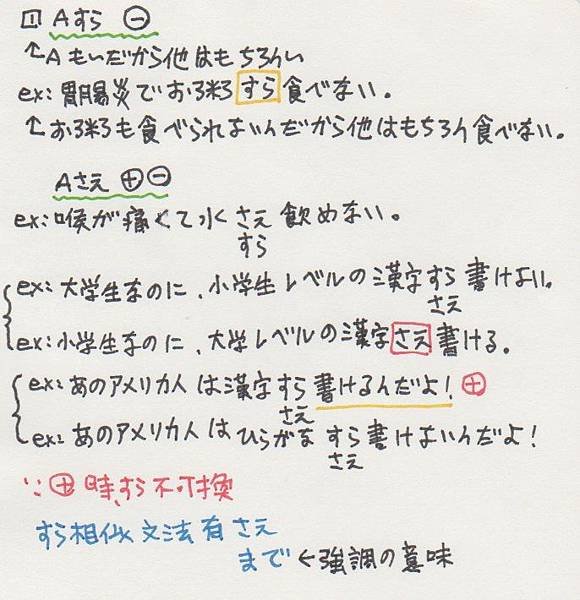 ① Aすら ⊖
↑Aもいだから他はもちろんい
ex:胃腸炎でお粥すら食べない。
↑お粥も食べられないんだから他はもちろん食べない。
Aさえ ⊕⊖
ex:喉が痛くて水さえ飲めない。
すら
ex:大学生なのに、小学生レベルの漢字すら書けない。
さえ
ex:小学生なのに、大学レベルの漢字さえ書ける。
ex:あのアメリカ人は漢字すら書けるんだよ!⊕
さえ
ex:あのアメリカ人はひらがなすら書けないんだよ!
さえ
∵⊕時,すら不可換
すら相似文法有さえ
まで←強調の意味